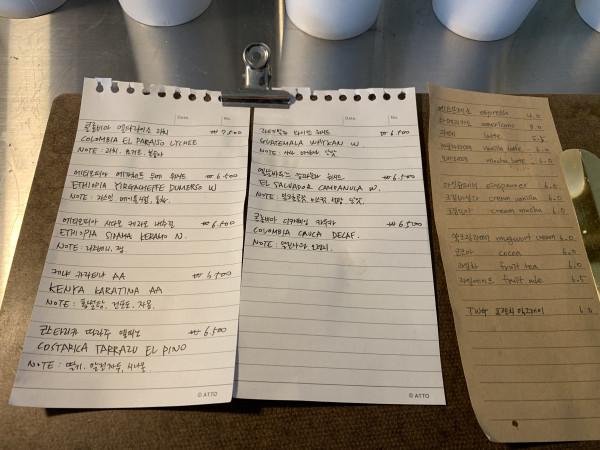 Date No.
콜롬비아 엘파라이소 리치 ₩7,500
COLOMBIA EL PARAISO LYCHEE
NOTE : 리치, 요거트, 복숭아
에티오피아 예가체프 두메르소 워시드 ₩6,500
ETHIOPIA YIRGACHEFFE DUMERSO W.
NOTE :
에티오피아 시다모 케라모 내추럴 ₩6,500
ETHIOPIA SIDAMA KERAMO N.
NOTE :
케냐 카라티나 AA ₩6,500
KENYA KARATINA AA
NOTE : 흑설탕, 건포도, 자몽
코스타리카 따라주 엘피노 ₩6,500
COSTARICA TARRAZU EL PINO
NOTE : 딸기,
© ATTO
Date No.
과테말라 와이칸 워시드 ₩6,500
GUATEMALA WAYKAN W.
NOTE : 사과
엘살바도르 캄파눌라 워시드 ₩6,500
EL SALVADOR CAMPANULA W.
NOTE : 밀크초콜릿
콜롬비아 디카페인 카우카 ₩6,500
COLOMBIA CAUCA DECAF.
NOTE :
© ATTO
에스프레소 espresso 4.0
아메리카노 americano 5.0
라떼 latte 5.5
바닐라라떼 vanilla latte 6.0
모카라떼 mocha latte 6.0
아인슈페너 einspanner 6.0
크림바닐라 cream vanilla 6.0
크림모카 cream mocha 6.0
쑥크림라떼 mugwort cream 6.0
코코아 cocoa 6.0
과일차 fruit tea 6.0
과일에이드 fruit ade 6.5
TWG 6.0